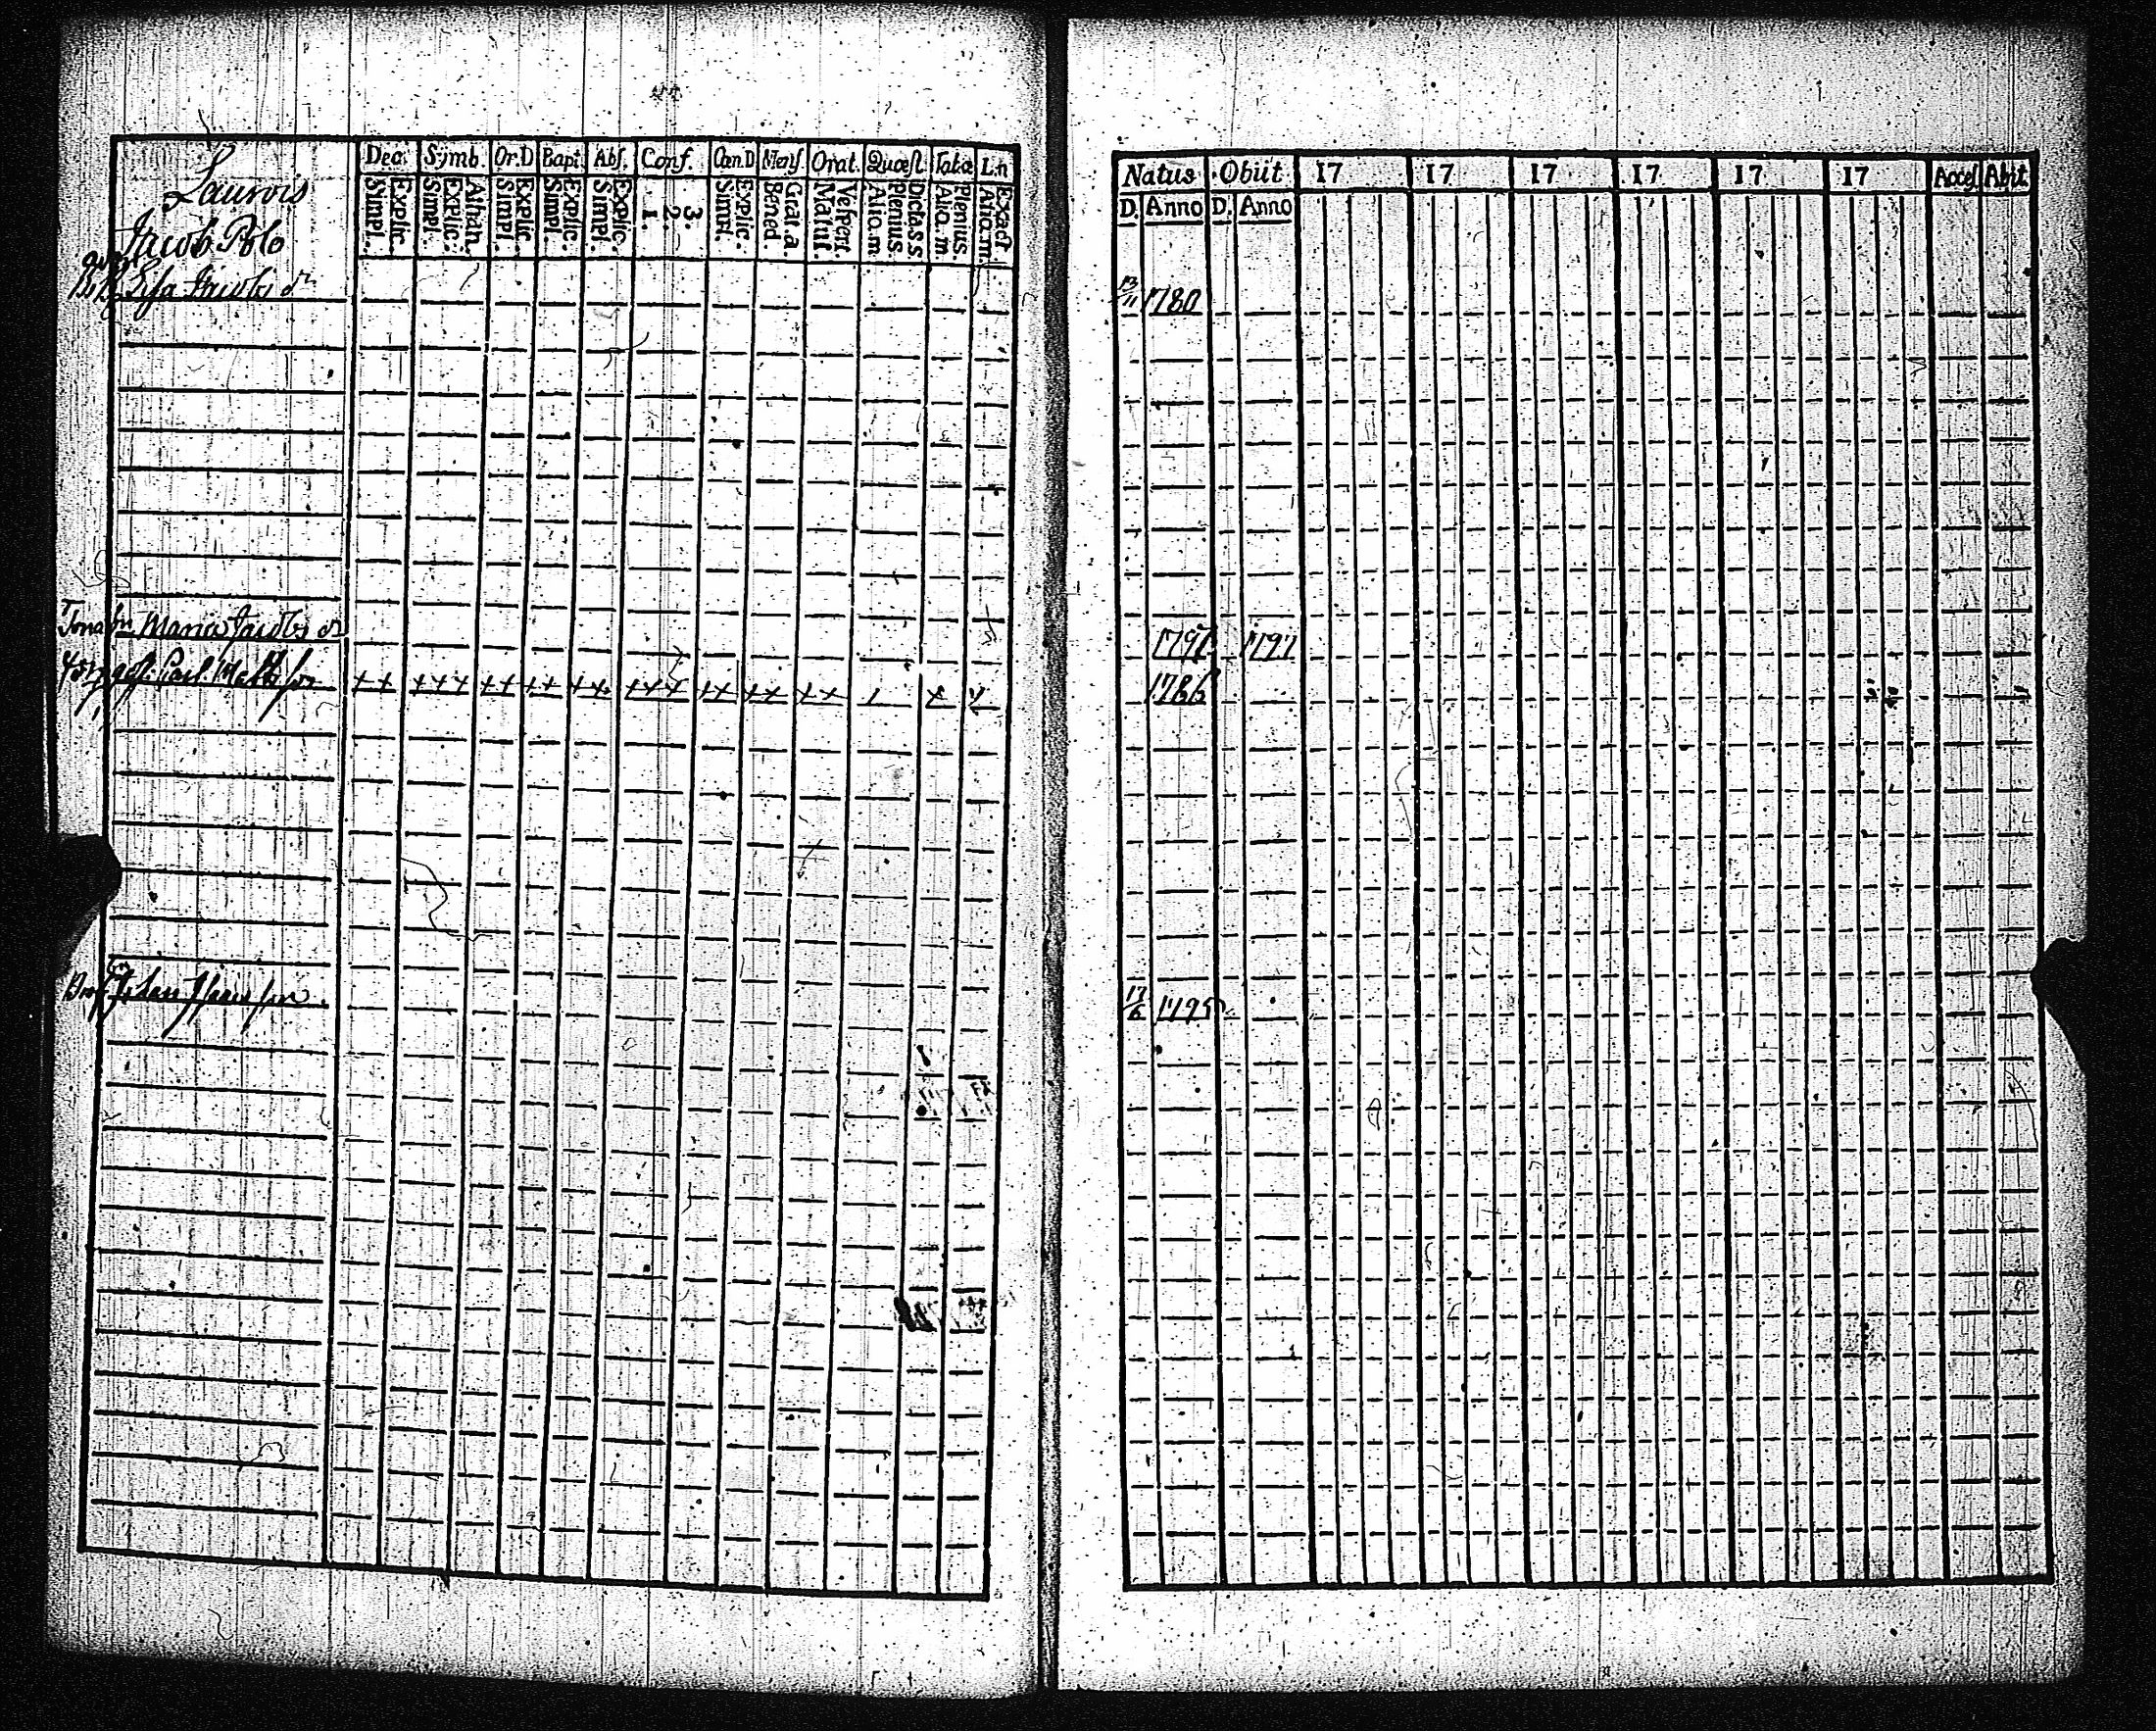 Laurois
Jacob Polo
Dec. Symb. Or.D Bapt. Abs. Conf. Cœn.D Mens. Orat. Quæst. Tabæ L.n
Simpl. Explic. Simpl. Explic. Athan. Simpl. Explic. Simpl. Explic. Simpl. Explic. 1. 2. 3. Simpl. Explic. Bened. Grat.a. Matut. Vespert. Alio.m. Plenius. Dicta.s.s. Alia.m. Plenius. Alio.m. Exact
Lisa Jacobs dr
Maria Jacobs dr
Carl Matts son
Johan son
Natus Obiit 17 17 17 17 17 17 Acces. Abit
D. Anno D. Anno
13/11 1780
1797 1797
1786
17/6 1795